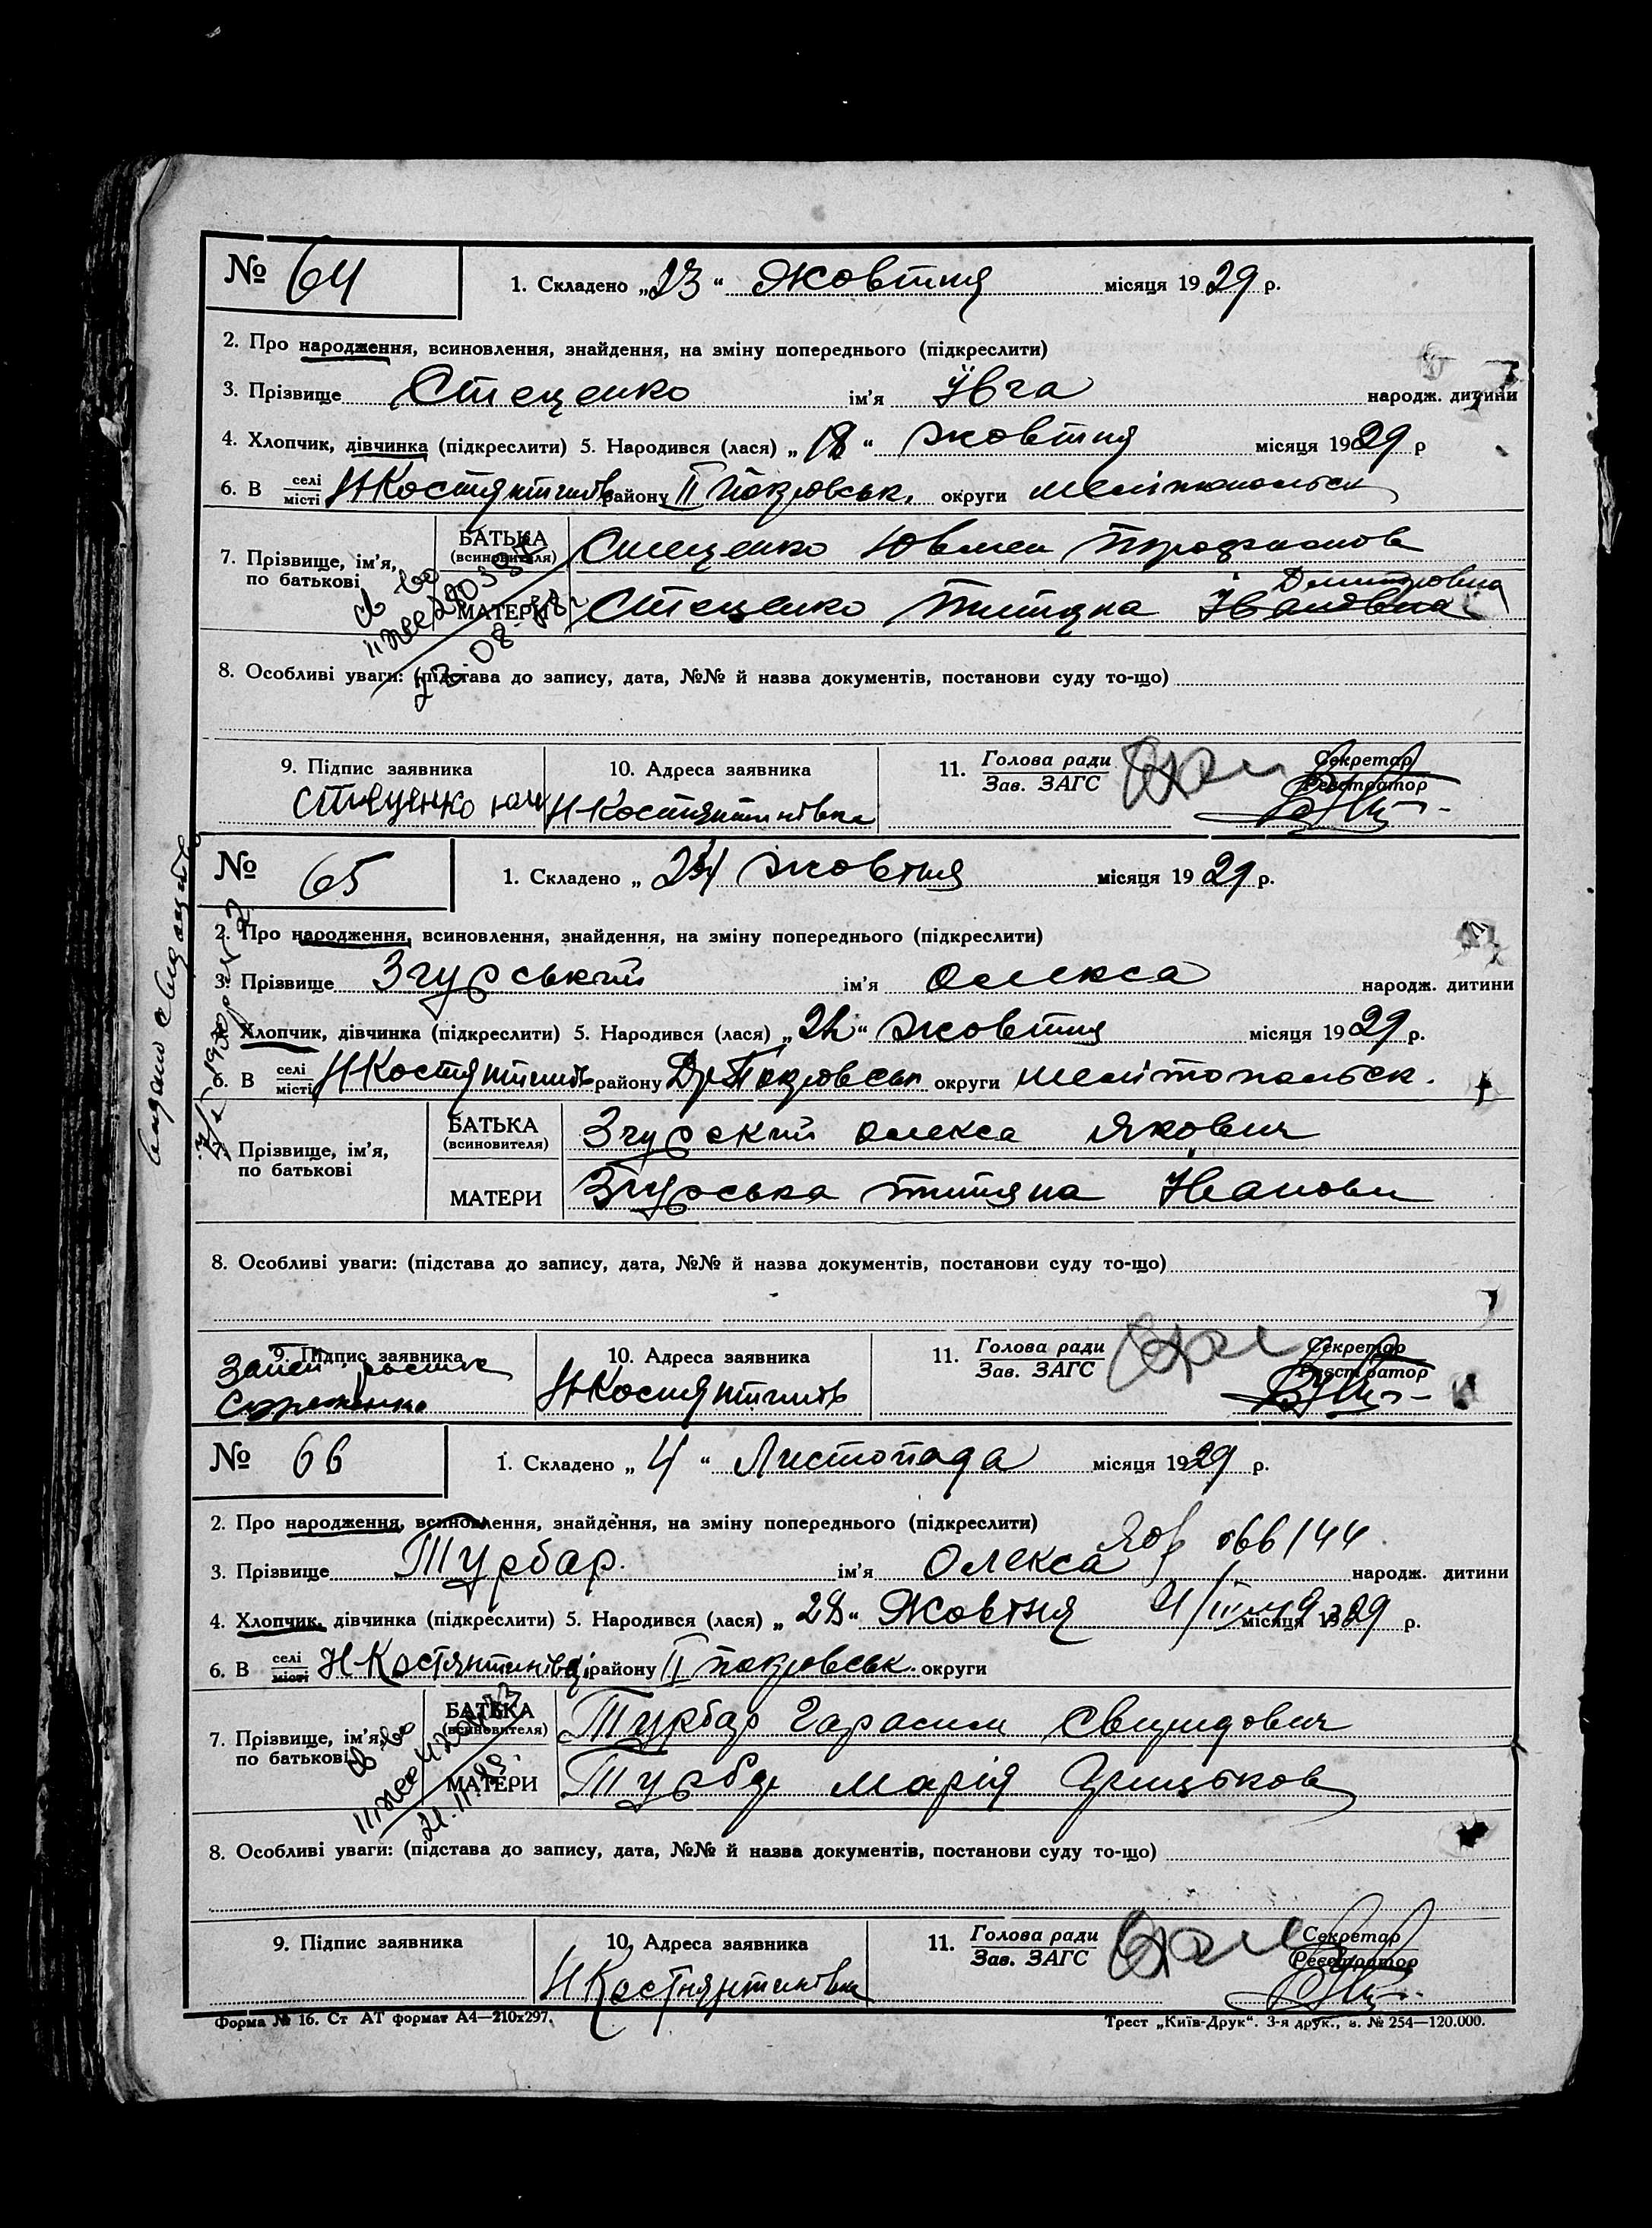 № 64 1. Складено „23“ Жовтня місяця 1929 р.
2. Про народження, всиновлення, знайдення, на зміну попереднього (підкреслити)
3. Прізвище Стеценко ім'я Ївга народж. дитини
4. Хлопчик, дівчинка (підкреслити) 5. Народився (лася) „18“ жовтня місяця 1929 р
6. В селі місті Н Костянтинів району ІІ Покровськ. округи Мелітопольськ
7. Прізвище, ім'я, по батькові
БАТЬКА (всиновителя) Стеценко Ювмен
Дмитровна
МАТЕРИ Стеценко Титяна Івановна
8. Особливі уваги: (підстава до запису, дата, №№ й назва документів, постанови суду то-що)
9. Підпис заявника 10. Адреса заявника 11. Голова ради Зав. ЗАГС Секретар Реєстратор
Стеценко Н Костянтинівка
№ 65 1. Складено „ 24 жовтня місяця 1929 р.
2. Про народження, всиновлення, знайдення, на зміну попереднього (підкреслити)
3. Прізвище Згурський ім'я Олекса народж. дитини
Хлопчик, дівчинка (підкреслити) 5. Народився (лася) „22“ жовтня місяця 1929 р.
6. В селі місті Н Костянтинів району Др. Покровськ округи Мелітопольск.
Прізвище, ім'я, по батькові
БАТЬКА (всиновителя) Згурский Олекса Якович
МАТЕРИ Згурська Титяна Іванови
8. Особливі уваги: (підстава до запису, дата, №№ й назва документів, постанови суду то-що)
9. Підпис заявника 10. Адреса заявника 11. Голова ради Зав. ЗАГС Секретар Реєстратор
Н Костянтинів
№ 66 1. Складено „ 4 “ Листопада місяця 1929 р.
2. Про народження, всиновлення, знайдення, на зміну попереднього (підкреслити)
3. Прізвище Турбар. ім'я Олекса народж. дитини
4. Хлопчик, дівчинка (підкреслити) 5. Народився (лася) „ 28“ Жовтня місяця 1929 р.
6. В селі місті Н Костянтинівці району ІІ Покровськ. округи
7. Прізвище, ім'я, по батькові
БАТЬКА (всиновителя) Турбар Гарасим Свиридович
МАТЕРИ Турбар Марія Грицьков
8. Особливі уваги: (підстава до запису, дата, №№ й назва документів, постанови суду то-що)
9. Підпис заявника 10. Адреса заявника 11. Голова ради Зав. ЗАГС Секретар Реєстратор
Н Костянтинівка
Форма № 16. Ст АТ формат А4—210х297. Трест „Київ-Друк“. 3-я друк., з. № 254—120.000.